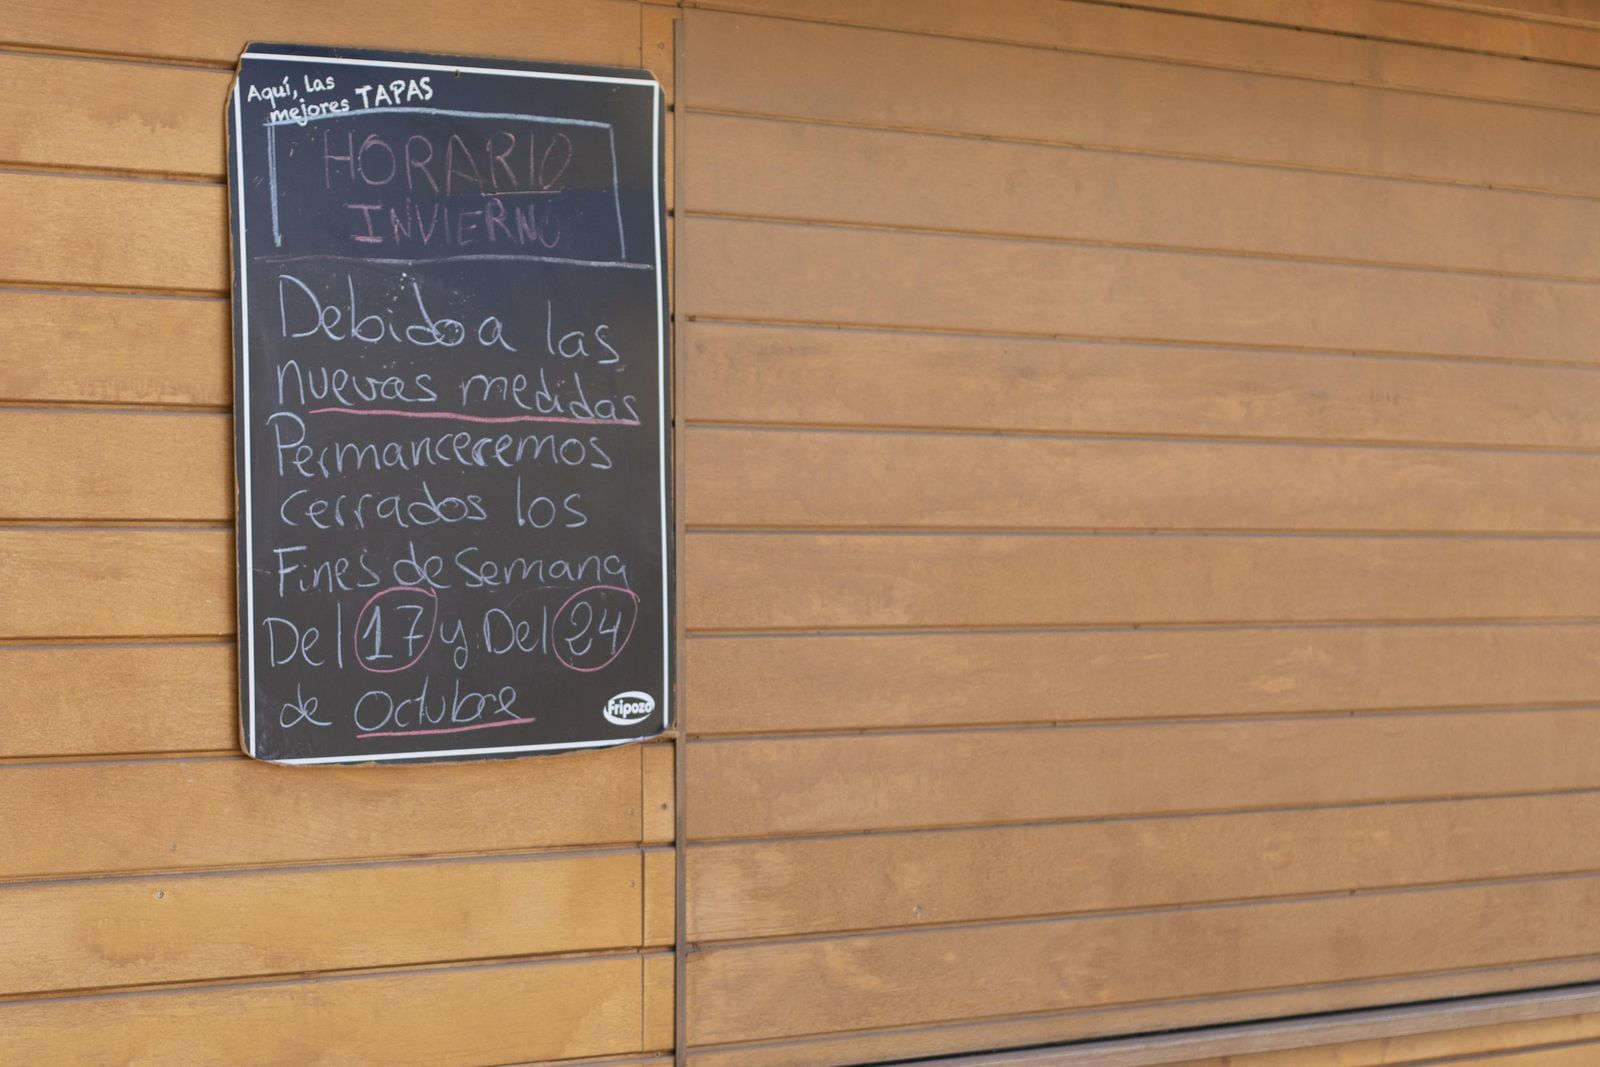 Aquí, las
mejores TAPAS
HORARIO
INVIERNO
Debido a las
nuevas medidas
Permanceremos
cerrados los
Fines de Semana
Del 17 y Del 24
de Octubre
Fripozo